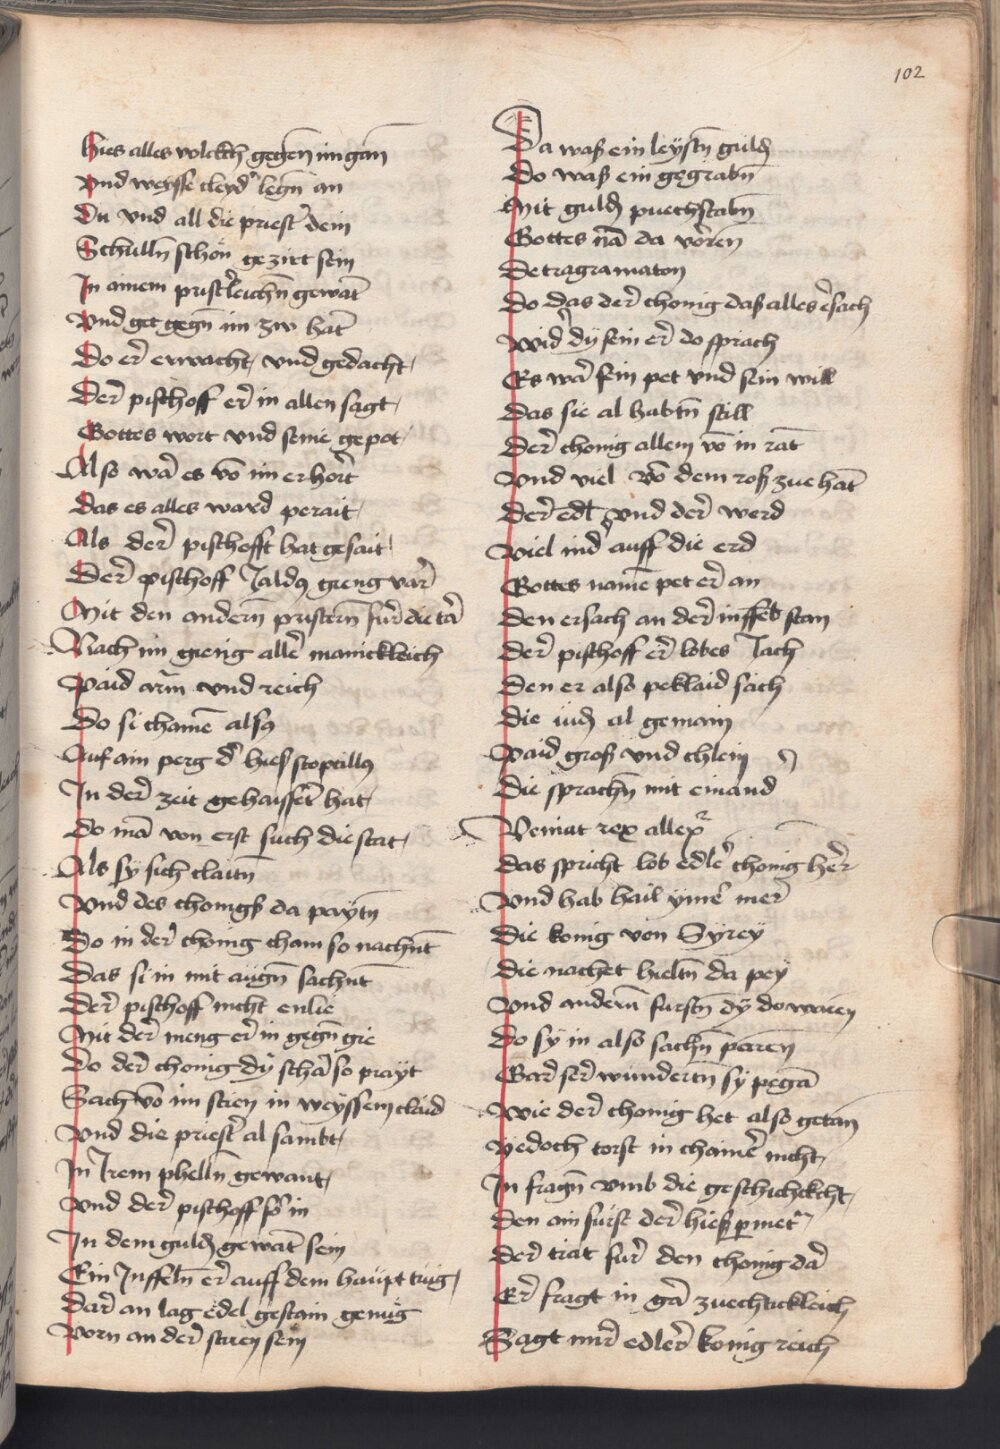 102
hies alles volckch gegen im gan
Vnd weysse cleyd legn an
Du vnd all die priest dein
Schulln schon gezirt sein
In ainem pristerleichn gewat
Vnd get gegn im zw hat
Do er erwacht vnd gedacht
Der pischoff er in allen sagt
Gottes wort vnd seine gepot
Also wa es vo im erhort
Das es alles ward perait
Als der pischofft hat gesait
Der pischoff Jaldus gieng var
Mit den andern pristern fur die ta
Nach im gieng alle manickleich
Paid arm vnd reich
Do si chame also
Auf ain perg d hies stoptillus
In der zeit gehaisset hat
Do ma von erst such die stat
Als sy sich claitn
Vnd des chonigs da paytn
Do in der chonig cham so nachnt
Das si in mit augn sachnt
Der pischoff nicht enlie
Mit der meng er in gegn gie
Do der chonig dy scha so prayt
Sach vo im sten in weyssem claid
Vnd die priest al sambt
In Irem phelln gewant
Vnd der pischoff in
In dem guld gewat sein
Ein Inffeln er auff dem haupt trug
Dar an lag edel gestain genug
Vorn an der stiren sein
Da waß ein leystn guld
Do waß ein gegrabn
Mit guld puechstabn
Gottes na da voren
Detragramaton
Do das der chonig daß alles ersach
Wid dy sein er do sprach
Es wa sein pet vnd sein will
Das sie al habtn still
Der chonig allein vo in rat
Vnd viel vo dem roß zue hat
Der edl vnd der werd
Viel nid auff die erd
Gottes name pet er an
Den ersach an der inffel stan
Der pischoff er lobes Jach
Den er also peklaid sach
Die iud al gemain
Paid groß vnd chlein
Die sprachn mit einand
Veniat rex allex
Das spricht lob edle chonig her
Vnd hab hail yme mer
Die konig von Syrey
Die nachet hieltn da pey
Vnd andern furstn dy do waren
Do sy in also sachn paren
Gar ser wundertn sy pega
Wie der chonig het also getan
Yedoch torst in chaine nicht
In fragn vmb die geschichckcht
Den ain furst der hieß pmet
Der trat fur den chonig da
Er fragt in ga zuechtickleich
Sagt mir edler konig reich